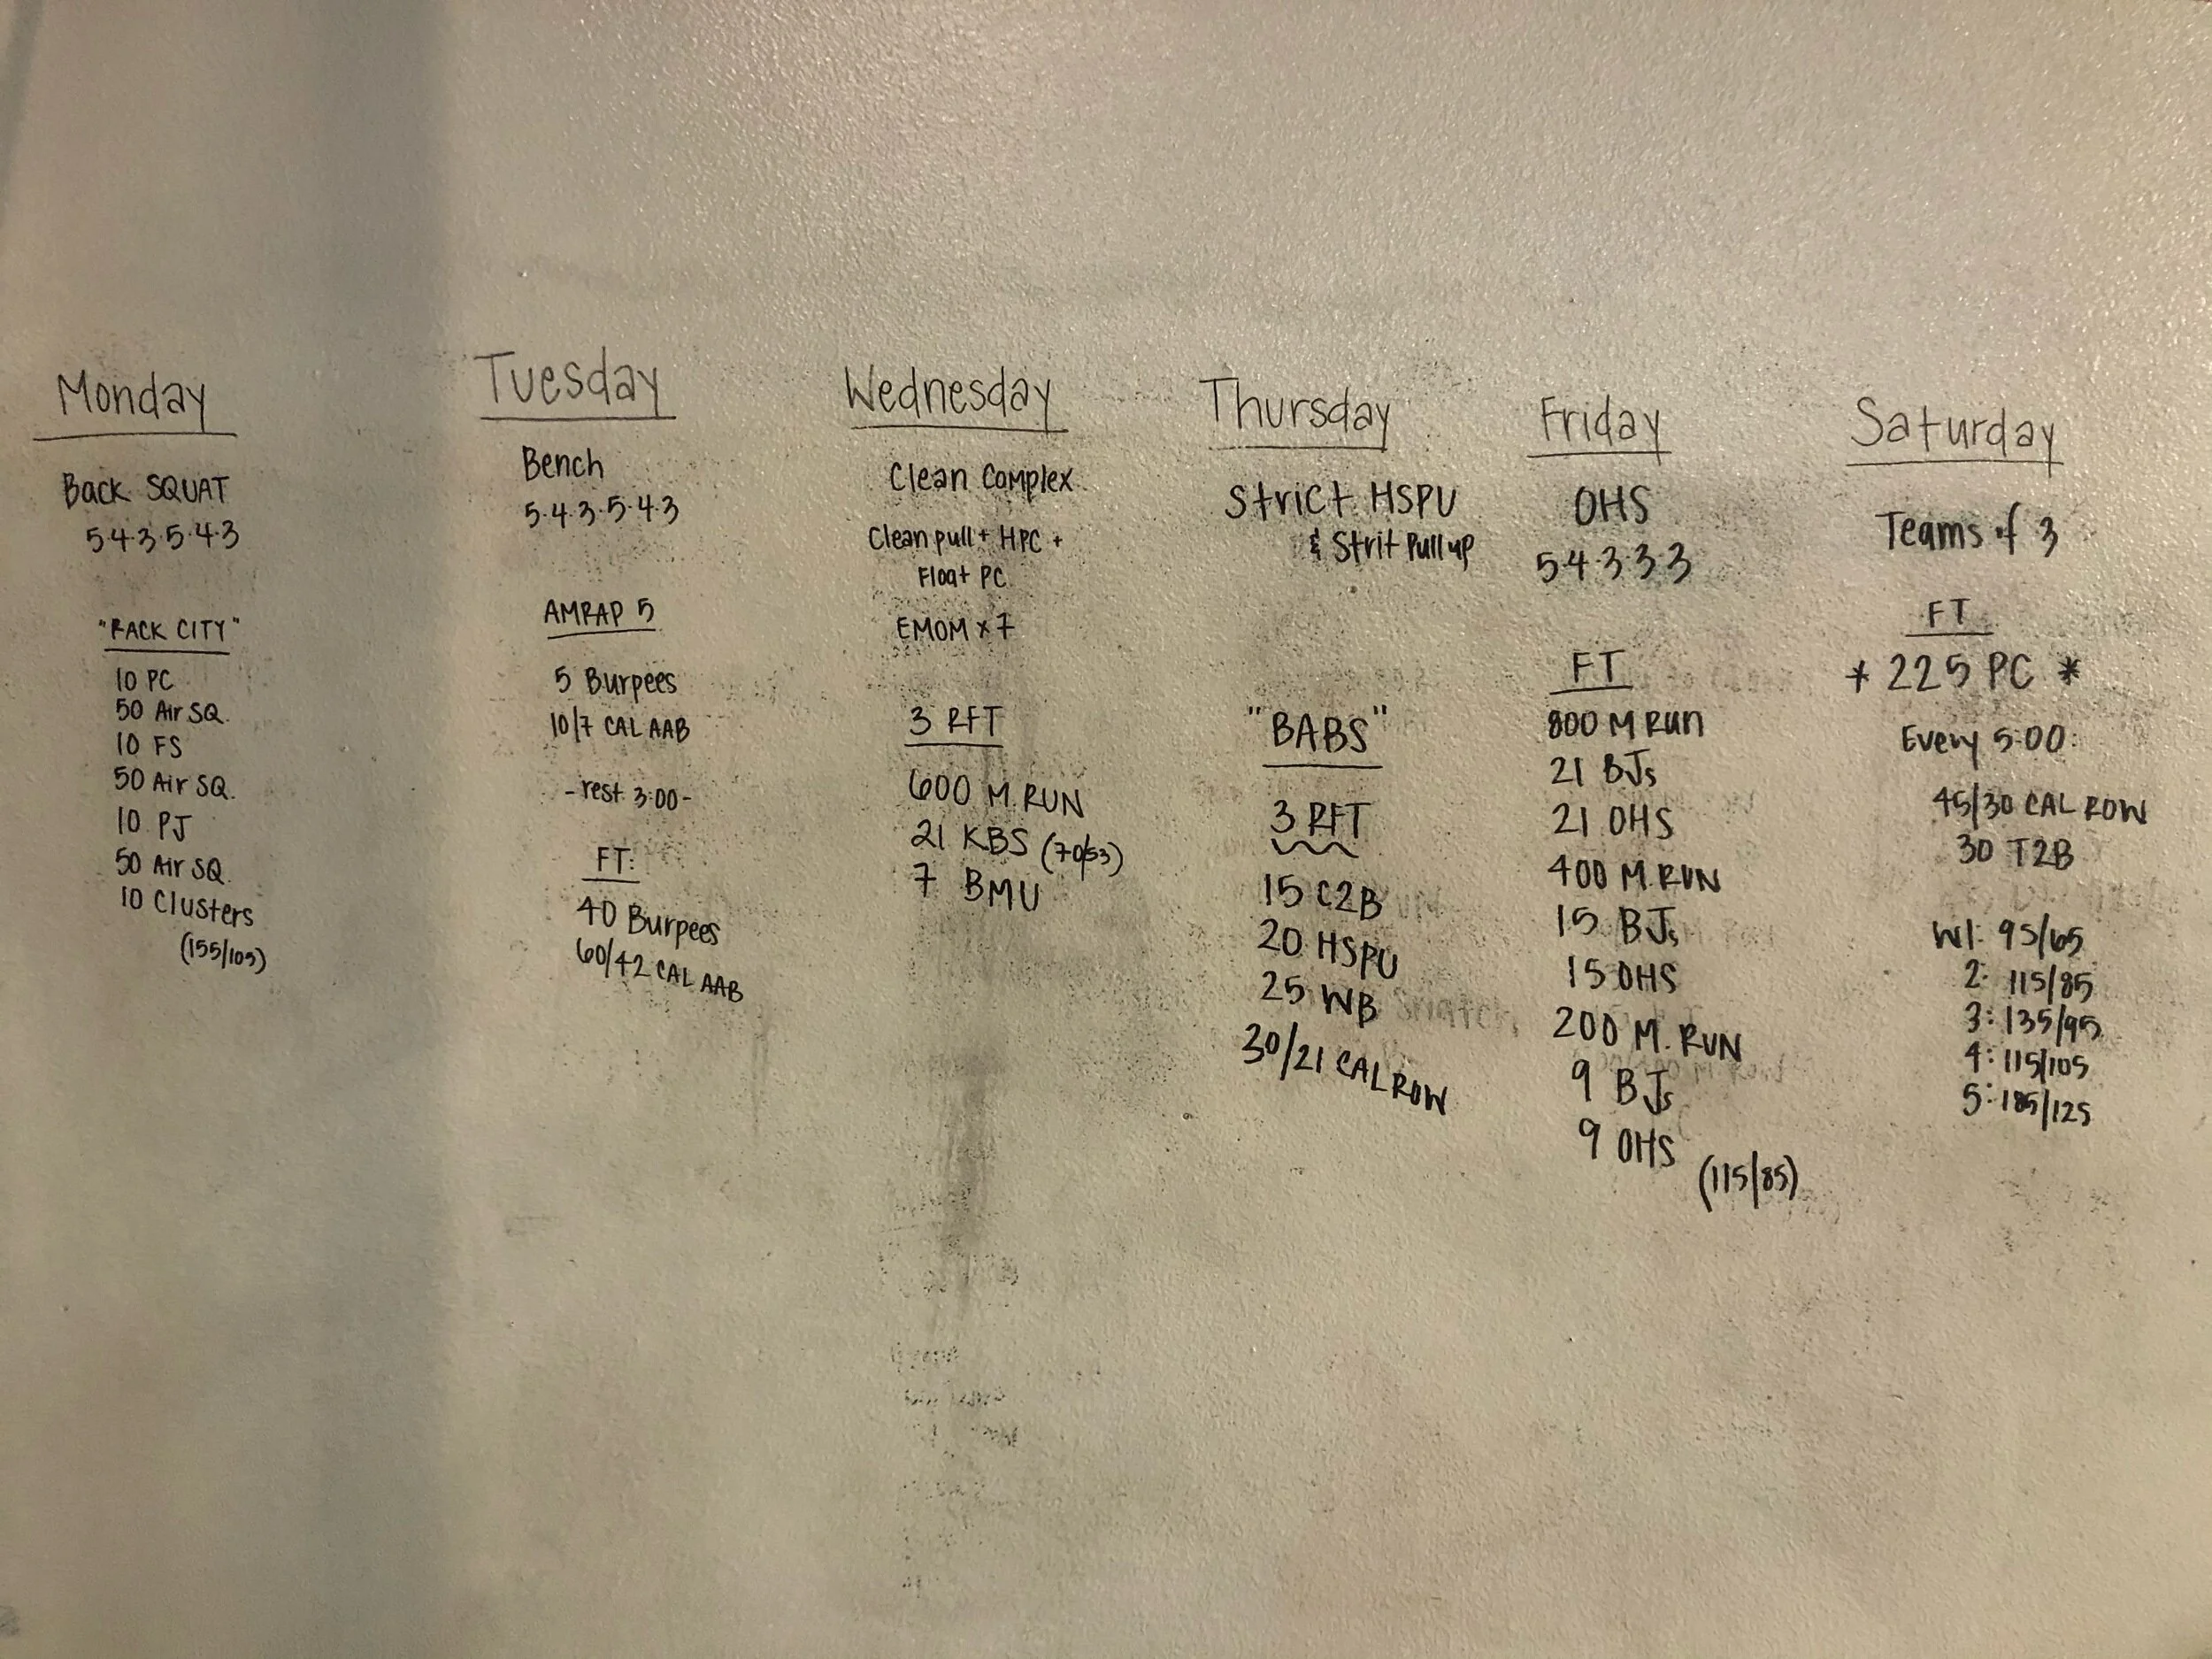 Monday
Back SQUAT
5·4·3·5·4·3
"RACK CITY"
10 PC
50 Air SQ.
10 FS
50 Air SQ.
10 PJ
50 Air SQ.
10 Clusters
(155/105)
Tuesday
Bench
5·4·3·5·4·3
AMRAP 5
5 Burpees
10/7 CAL AAB
-rest 3:00-
FT:
40 Burpees
60/42 CAL AAB
Wednesday
Clean Complex
Clean pull + HPC +
Float PC
EMOM x 7
3 RFT
600 M. RUN
21 KBS (70/53)
7 BMU
Thursday
Strict HSPU
& Strit Pull up
"BABS"
3 RFT
15 C2B
20 HSPU
25 WB
30/21 CAL ROW
Friday
OHS
5·4·3·3·3
FT
800 M RUN
21 BJs
21 OHS
400 M. RUN
15 BJs
15 OHS
200 M. RUN
9 BJs
9 OHS
(115/85)
Saturday
Teams of 3
FT
* 225 PC *
Every 5:00:
45/30 CAL ROW
30 T2B
W1: 95/65
2: 115/85
3: 135/95
4: 115/105
5: 185/125